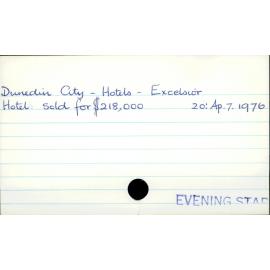 Dunedin City - Hotels - Excelsior
Hotel: Sold for $218,000 20: Ap. 7. 1976
EVENING STAR